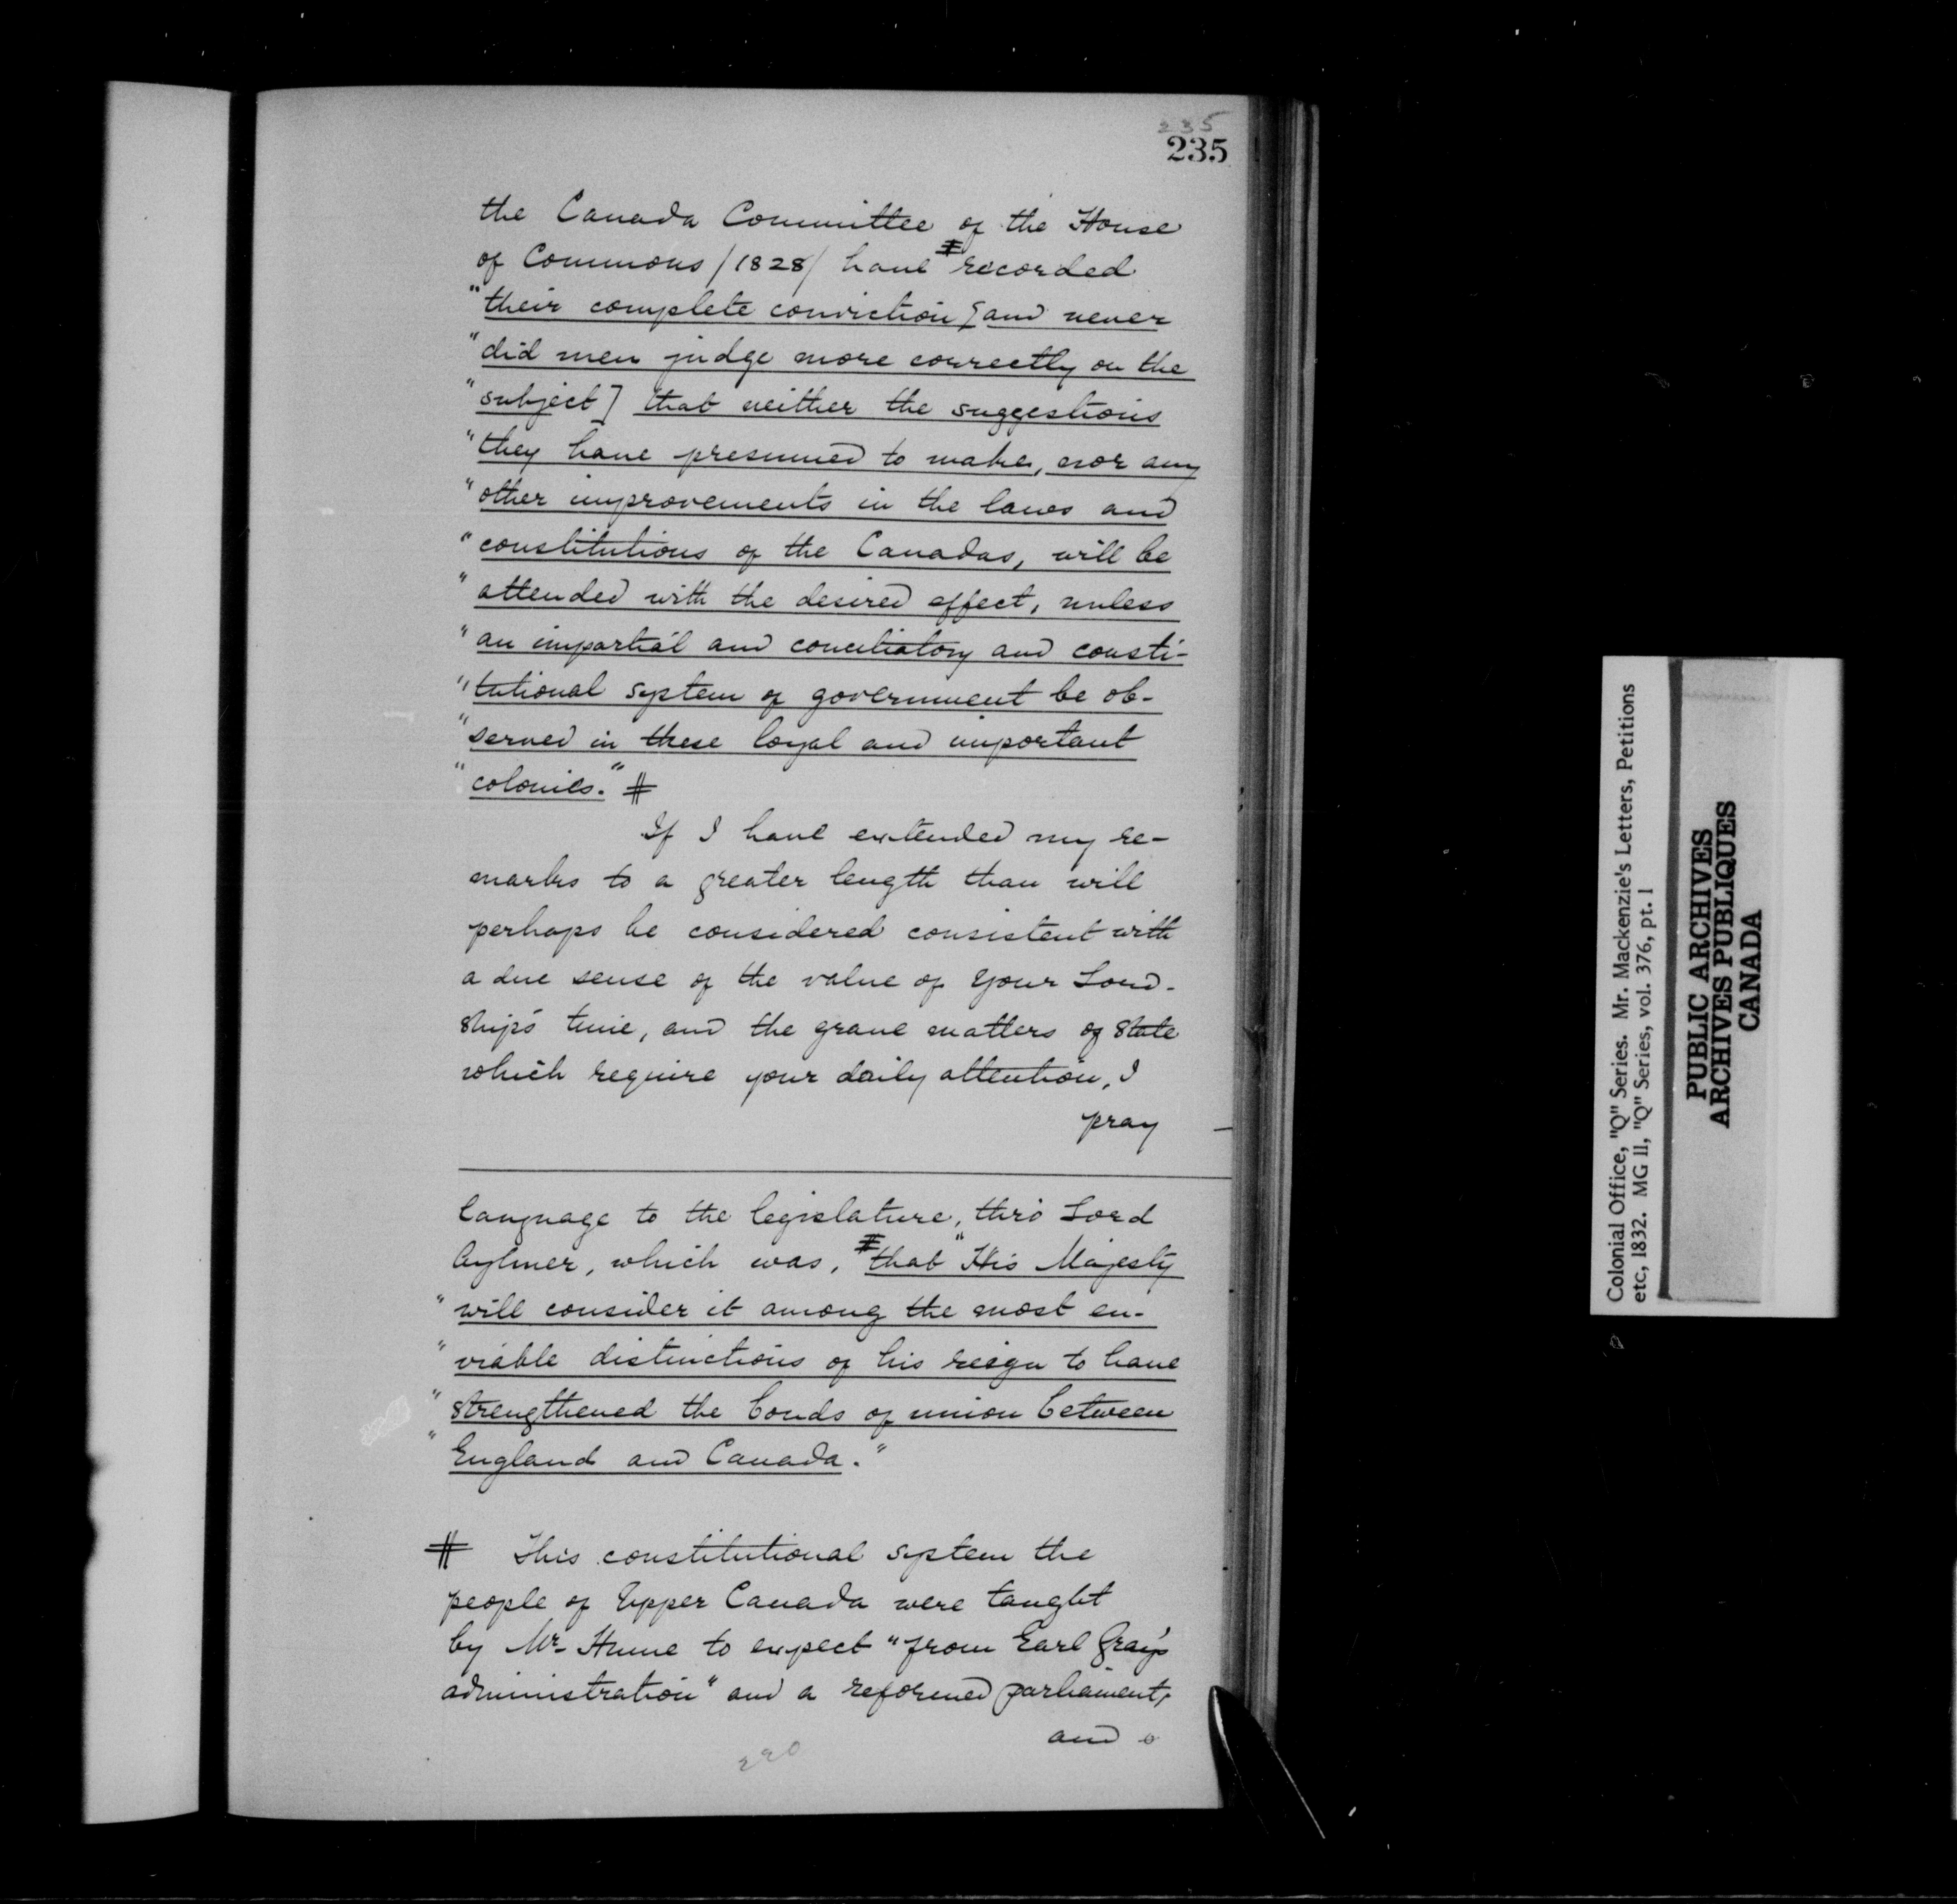 235
235
the Canada Committee of the House
of Commons /1828/ have ⧧ recorded
"their complete conviction [and never
"did men judge more correctly on the
"subject] that neither the suggestions
"they have presumed to make, nor any
"other improvements in the laws and
"constitutions of the Canadas, will be
"attended with the desired effect, unless
"an impartial and conciliatory and consti-
"tutional system of government be ob-
"served in these loyal and important
"colonies." ⧧
If I have extended my re-
marks to a greater length than will
perhaps be considered consistent with
a due sense of the value of Your Lord-
ship's time, and the grave matters of State
which require your daily attention, I
pray
language to the legislature, thro' Lord
Aylmer, which was, ⧧ that "His Majesty
"will consider it among the most en-
"viable distinctions of his reign to have
"strengthened the bonds of union between
"England and Canada."
⧧ This constitutional system the
people of Upper Canada were taught
by Mr. Hume to expect "from Earl Gray's
administration" and a reformed parliament,
and
290
Colonial Office, "Q" Series. Mr. Mackenzie's Letters, Petitions
etc, 1832. MG 11, "Q" Series, vol. 376, pt. 1
PUBLIC ARCHIVES
ARCHIVES PUBLIQUES
CANADA